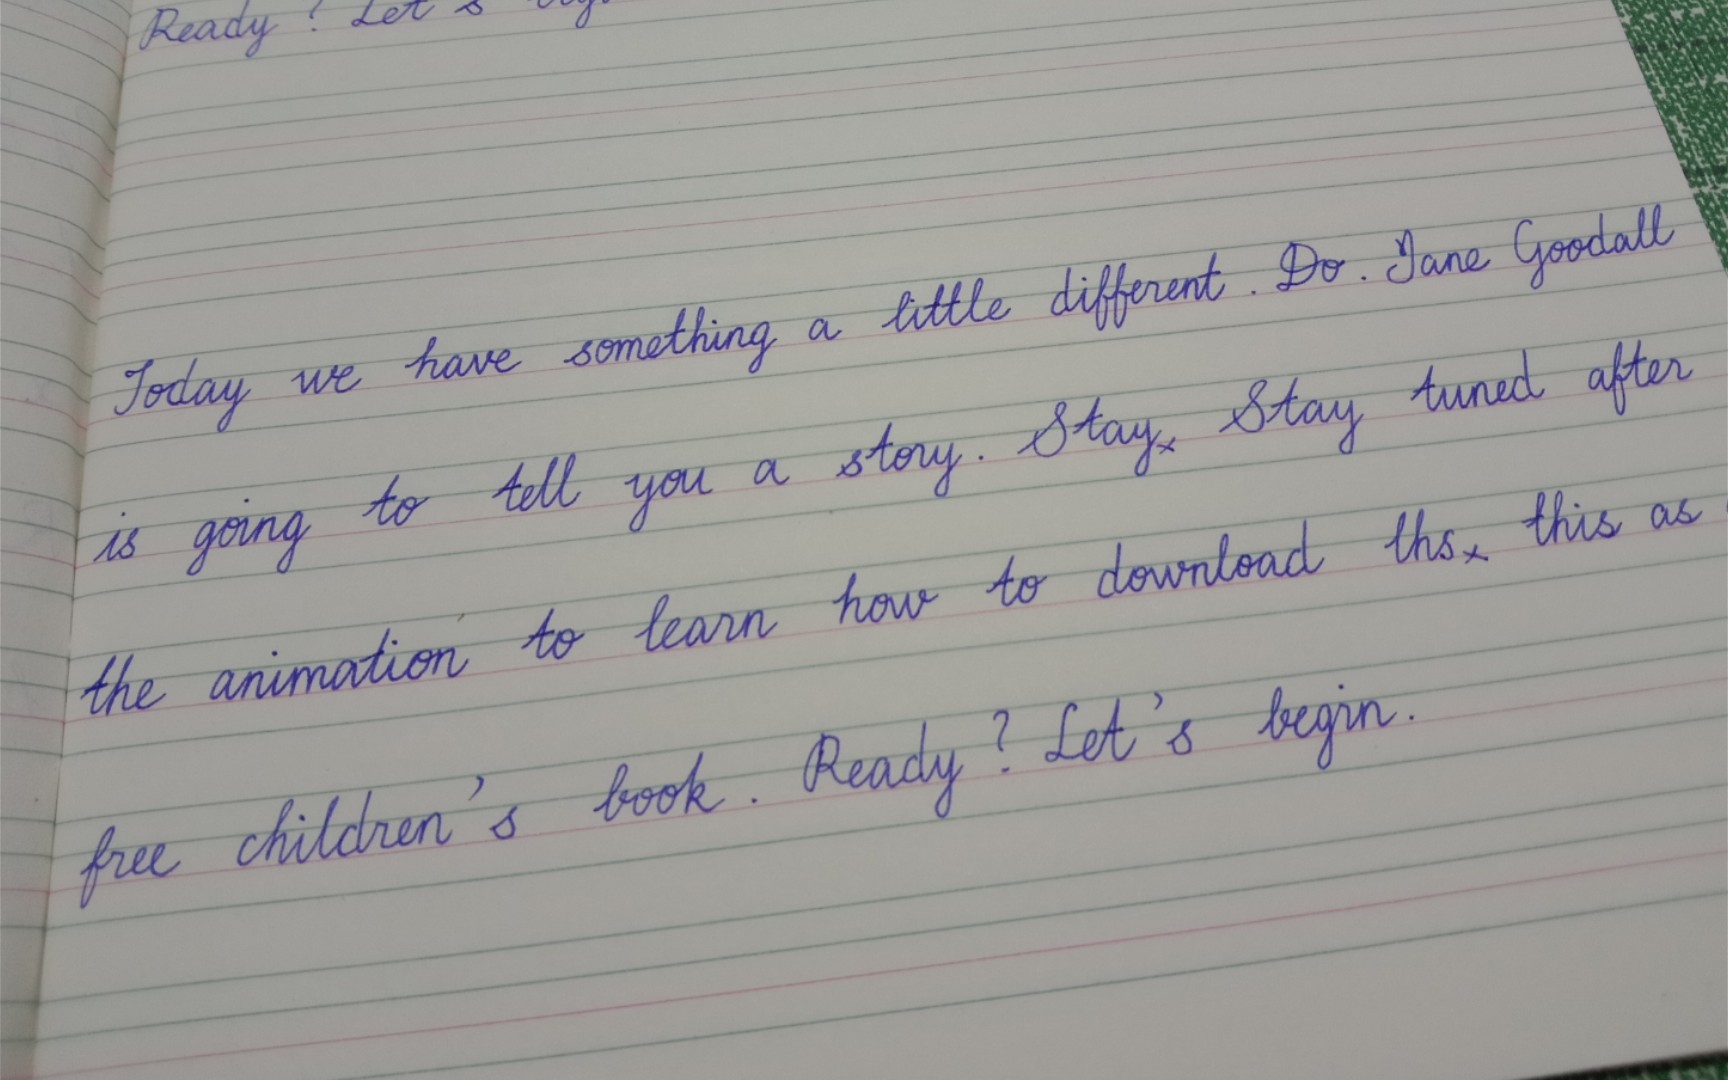 Ready? Let's
Today we have something a little different. Do. Jane Goodall
is going to tell you a story. Stay× Stay tuned after
the animation to learn how to download ths× this as
free children's book. Ready? Let's begin.